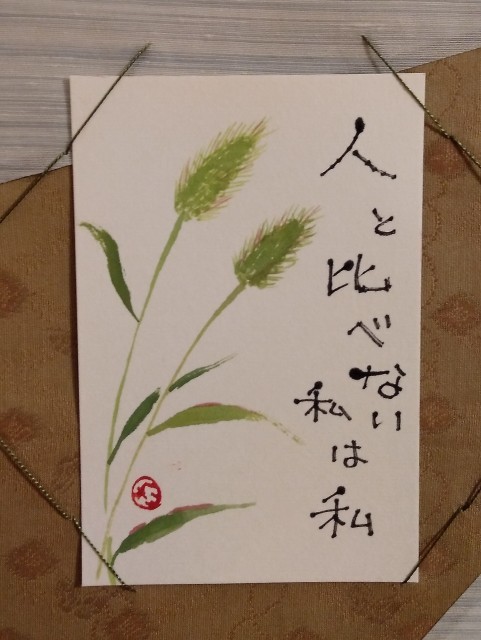 人と比べない
私は私